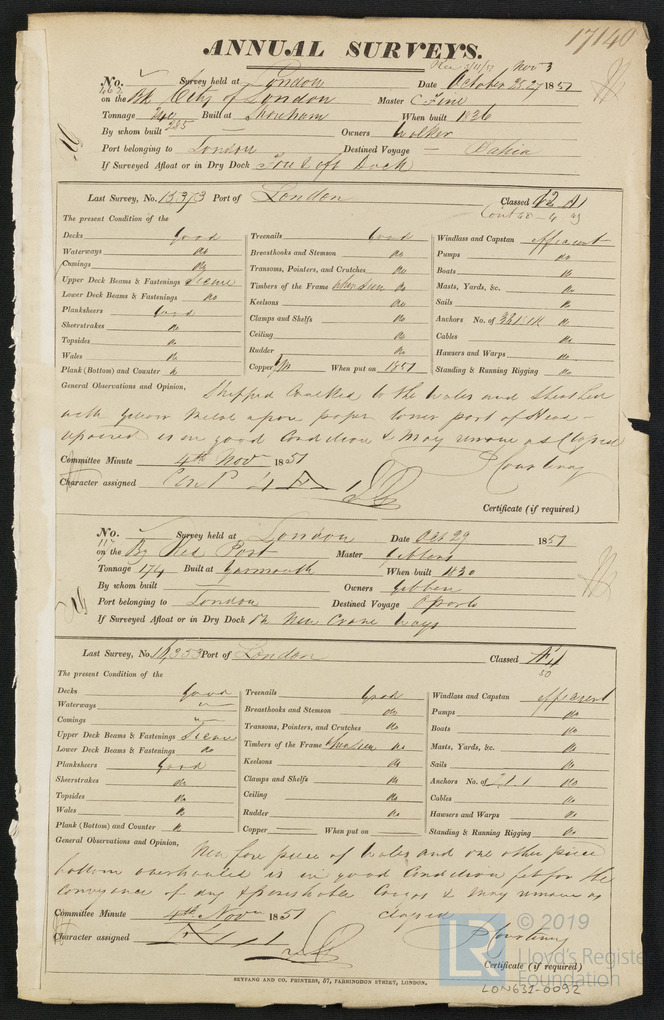 17140
ANNUAL SURVEYS.
Nov 3
No. Survey held at London Date October 25, 27 1851
on the Bk City of London Master
Tonnage Built at Shoreham When built 1836
285
By whom built Owners Walker
Port belonging to London Destined Voyage — Bahia
If Surveyed Afloat or in Dry Dock Dock
Last Survey, No. 15373 Port of London Classed 12 A1
Cont
The present Condition of the
Decks Good
Waterways do
Comings do
Upper Deck Beams & Fastenings Secure
Lower Deck Beams & Fastenings do
Planksheers Good
Sheerstrakes do
Topsides do
Wales do
Plank (Bottom) and Counter do
Treenails Good
Breasthooks and Stemson do
Transoms, Pointers, and Crutches do
Timbers of the Frame when seen do
Keelsons do
Clamps and Shelfs do
Ceiling do
Rudder do
Copper YM When put on 1851
Windlass and Capstan efficient
Pumps do
Boats do
Masts, Yards, &c. do
Sails do
Anchors No. of 3B 1S 1K do
Cables do
Hawsers and Warps do
Standing & Running Rigging do
General Observations and Opinion, Stripped Caulked to the Wales and Sheathed
with yellow Metal upon paper lower part of Head
repaired is in good Condition & May remain as Classed
Committee Minute 4th Nov 1851 P Courtenay
Character assigned
Certificate (if required)
No. Survey held at London Date Oct 29 1851
117
on the Bg Red Port Master Gibbons
Tonnage 174 Built at Yarmouth When built 1830
By whom built Owners Gibbon
Port belonging to London Destined Voyage Oporto
If Surveyed Afloat or in Dry Dock New Crane Ways
Last Survey, No. 14353 Port of London Classed Æ1
50
The present Condition of the
Decks Good
Waterways —
Comings —
Upper Deck Beams & Fastenings Secure
Lower Deck Beams & Fastenings do
Planksheers Good
Sheerstrakes do
Topsides do
Wales do
Plank (Bottom) and Counter do
Treenails Good
Breasthooks and Stemson do
Transoms, Pointers, and Crutches do
Timbers of the Frame when seen do
Keelsons do
Clamps and Shelfs do
Ceiling do
Rudder do
Copper — When put on —
Windlass and Capstan efficient
Pumps do
Boats do
Masts, Yards, &c. do
Sails do
Anchors No. of 2. 1. 1 do
Cables do
Hawsers and Warps do
Standing & Running Rigging do
General Observations and Opinion, New fore piece of Wales and one other piece
bottom overhauled is in good Condition fit for the
Conveyance of dry & perishable Cargos & May remain as
Classed
Committee Minute 4th Nov 1851
P Courtenay
Character assigned
Certificate (if required)
SEYFANG AND CO. PRINTERS, 57, FARRINGDON STREET, LONDON.
LR © 2019
Lloyd's Register
Foundation
LON631-0092